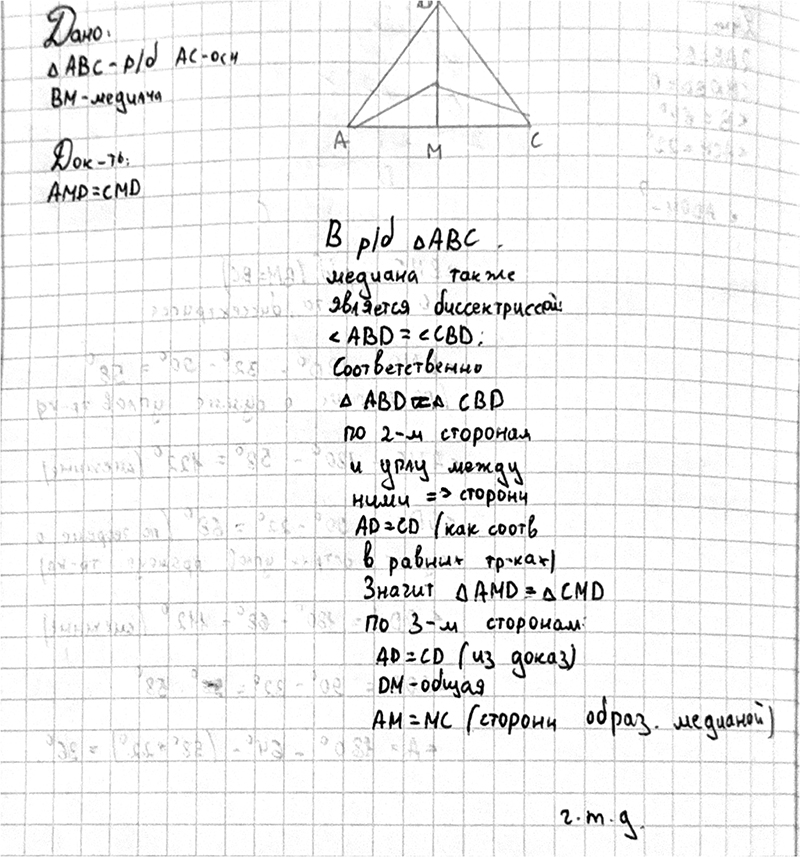 Дано:
△ ABC - р/б AC-осн
BM-медиача
Док-ть:
AMD=CMD
A
M
C
В р/б △ABC.
медиана также
является биссектриссой:
<ABD=<CBD;
Соответственно
△ ABD=△ CBD
по 2-м сторонам
и углу между
ними => сторони
AD=CD (как соотв
в равных тр-ках)
Значит △AMD=△CMD
по 3-м сторонам:
AD=CD (из доказ)
DM-общая
AM=MC (сторони образ. медианой)
ч.т.д.